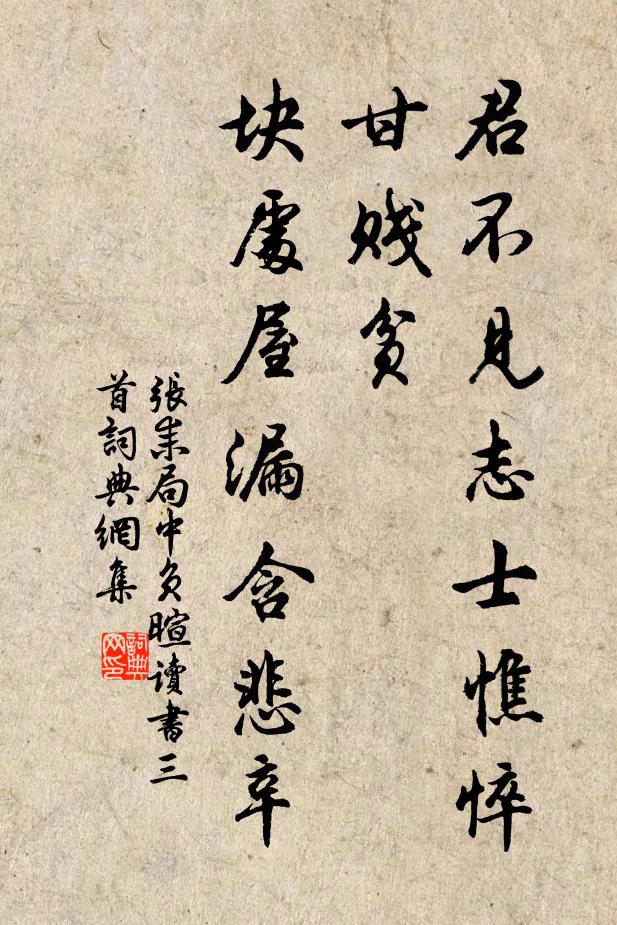 君不見志士憔悴
甘賤貧
块處屋漏含悲辛
張耒局中負暄讀書三
首詞典網集
詞典
网印